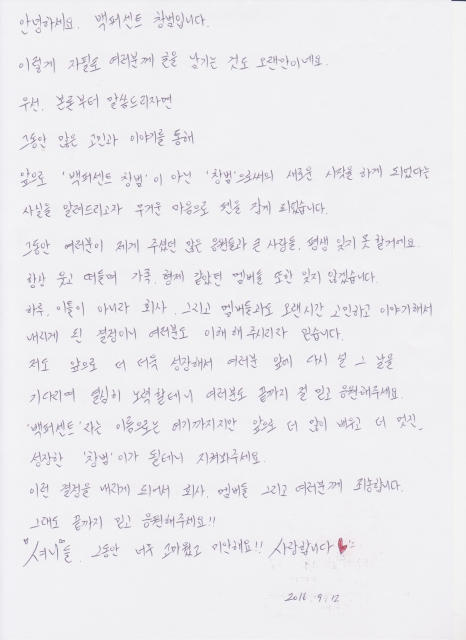 안녕하세요. 백퍼센트 창범입니다.
이렇게 자필로 여러분께 글을 남기는 것도 오랜만이네요.
우선, 본론부터 말씀드리자면
그동안 많은 고민과 이야기를 통해
앞으로 '백퍼센트 창범'이 아닌 '창범'으로써의 새로운 시작을 하게 되었다는
사실을 알려드리고자 무거운 마음으로 펜을 잡게 되었습니다.
그동안 여러분이 제게 주셨던 많은 응원들과 큰 사랑들, 평생 잊지 못 할거에요.
항상 웃고 떠들며 가족, 형제 같았던 멤버들 또한 잊지 않겠습니다.
하루, 이틀이 아니라 회사, 그리고 멤버들과도 오랜시간 고민하고 이야기해서
내리게 된 결정이니 여러분도 이해 해 주시리라 믿습니다.
저도 앞으로 더 더욱 성장해서 여러분 앞에 다시 설 그 날을
기다리며 열심히 노력할테니 여러분도 끝까지 절 믿고 응원해주세요.
'백퍼센트'라는 이름으로는 여기까지지만 앞으로 더 많이 배우고 더 멋진,
성장한 '창범'이가 될테니 지켜봐주세요.
이런 결정을 내리게 되어서 회사, 멤버들 그리고 여러분께 죄송합니다.
그래도 끝까지 믿고 응원해주세요!!
"셔니"들, 그동안 너무 고마웠고 미안해요!! 사랑합니다
2016. 9. 12